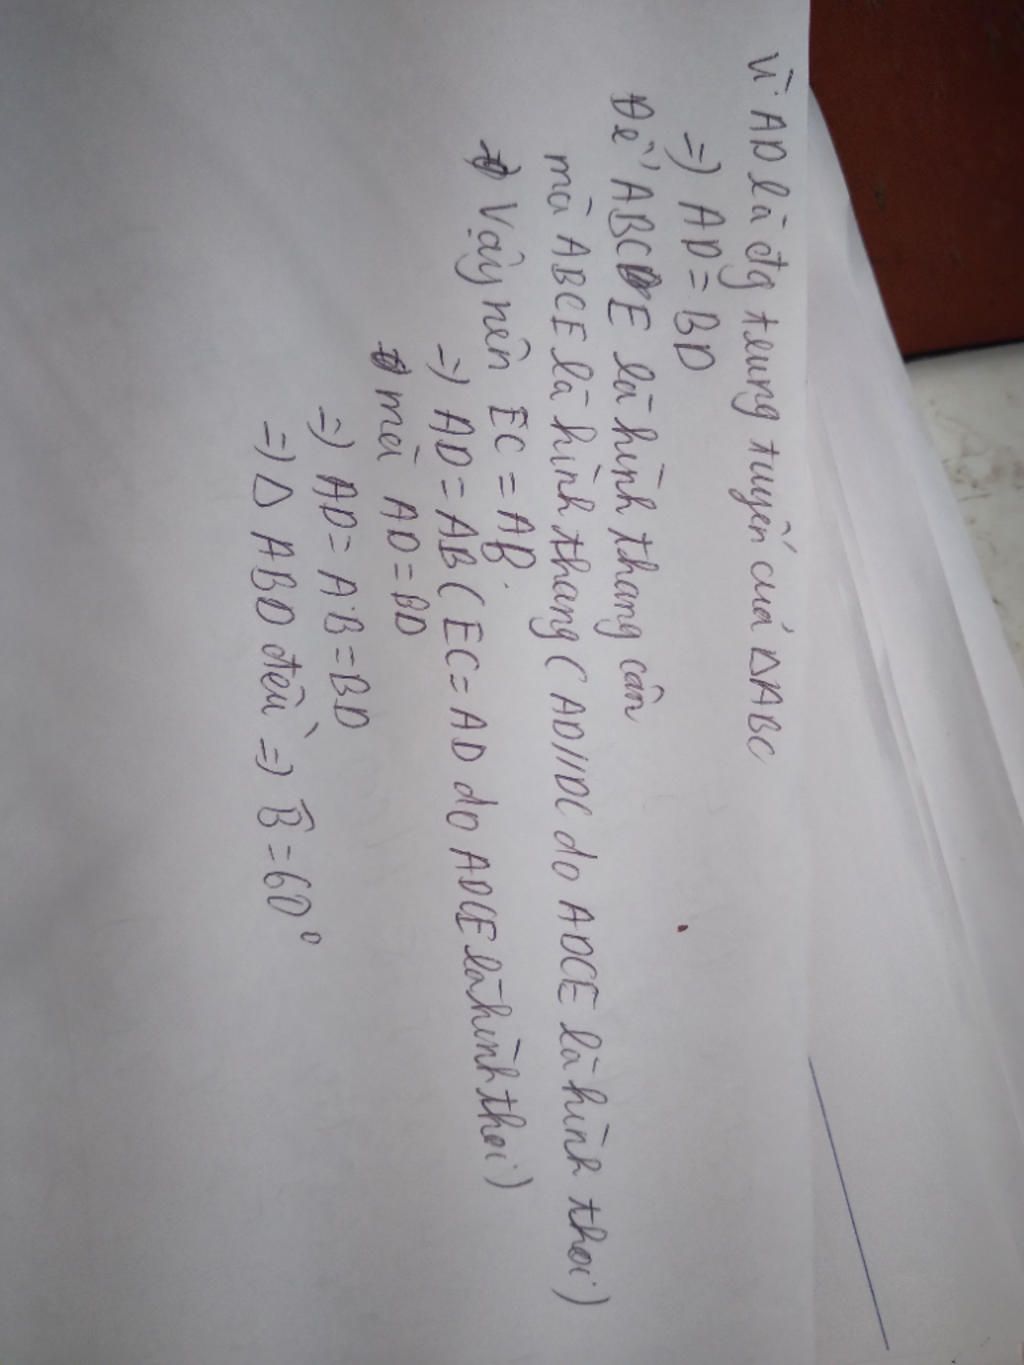 Vì AD là đg trung tuyến của ΔABC
=) AD = BD
Để ABCE là hình thang cân
mà ABCE là hình thang ( AD//DC do ADCE là hình thoi )
Vậy nên EC = AB.
=) AD = AB ( EC = AD do ADCE là hình thoi )
mà AD = BD
=) AD = AB = BD
=) Δ ABD đều =) B̂ = 60°